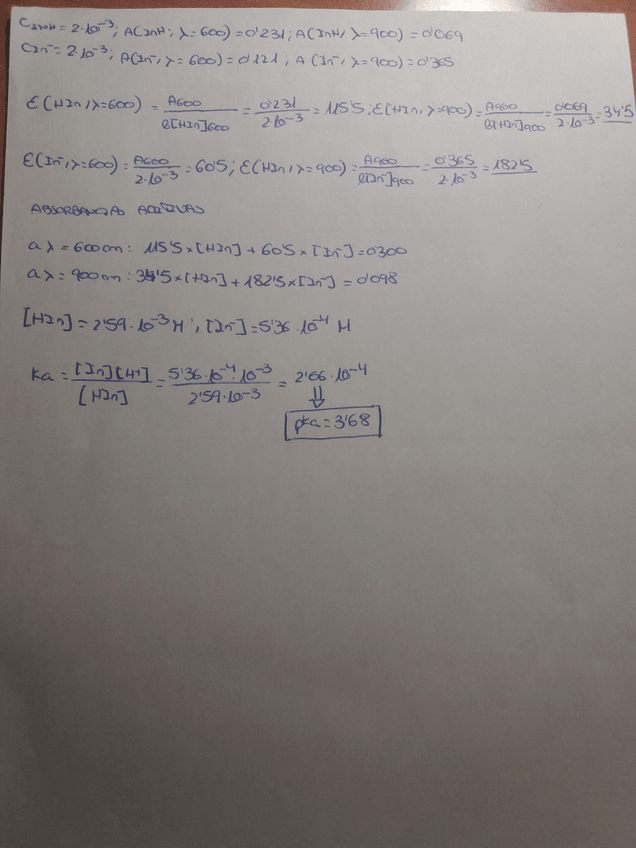 C InH = 2·10⁻³; A(InH; λ=600) = 0'231; A(InH, λ=900) = 0'069
C In⁻ = 2·10⁻³; A(In⁻, λ=600) = 0'121; A(In⁻, λ=900) = 0'365
ε(HIn, λ=600) = A600/B[HIn]600 = 0'231/2·10⁻³ = 115'5; ε(HIn, λ=900) = A900/B[HIn]900 = 0'069/2·10⁻³ = 34'5
ε(In⁻, λ=600) = A600/2·10⁻³ = 60'5; ε(HIn, λ=900) = A900/B[In⁻]900 = 0'365/2·10⁻³ = 182'5
ABSORBANCIAS ADITIVAS
a λ = 600 nm: 115'5 × [HIn] + 60'5 × [In⁻] = 0'300
a λ = 900 nm: 34'5 × [HIn] + 182'5 × [In⁻] = 0'098
[HIn] = 2'59·10⁻³ M, [In⁻] = 5'36·10⁻⁴ M
Ka = [In⁻][H⁺]/[HIn] = 5'36·10⁻⁴·10⁻³/2'59·10⁻³ = 2'06·10⁻⁴
⇓
pKa = 3'68